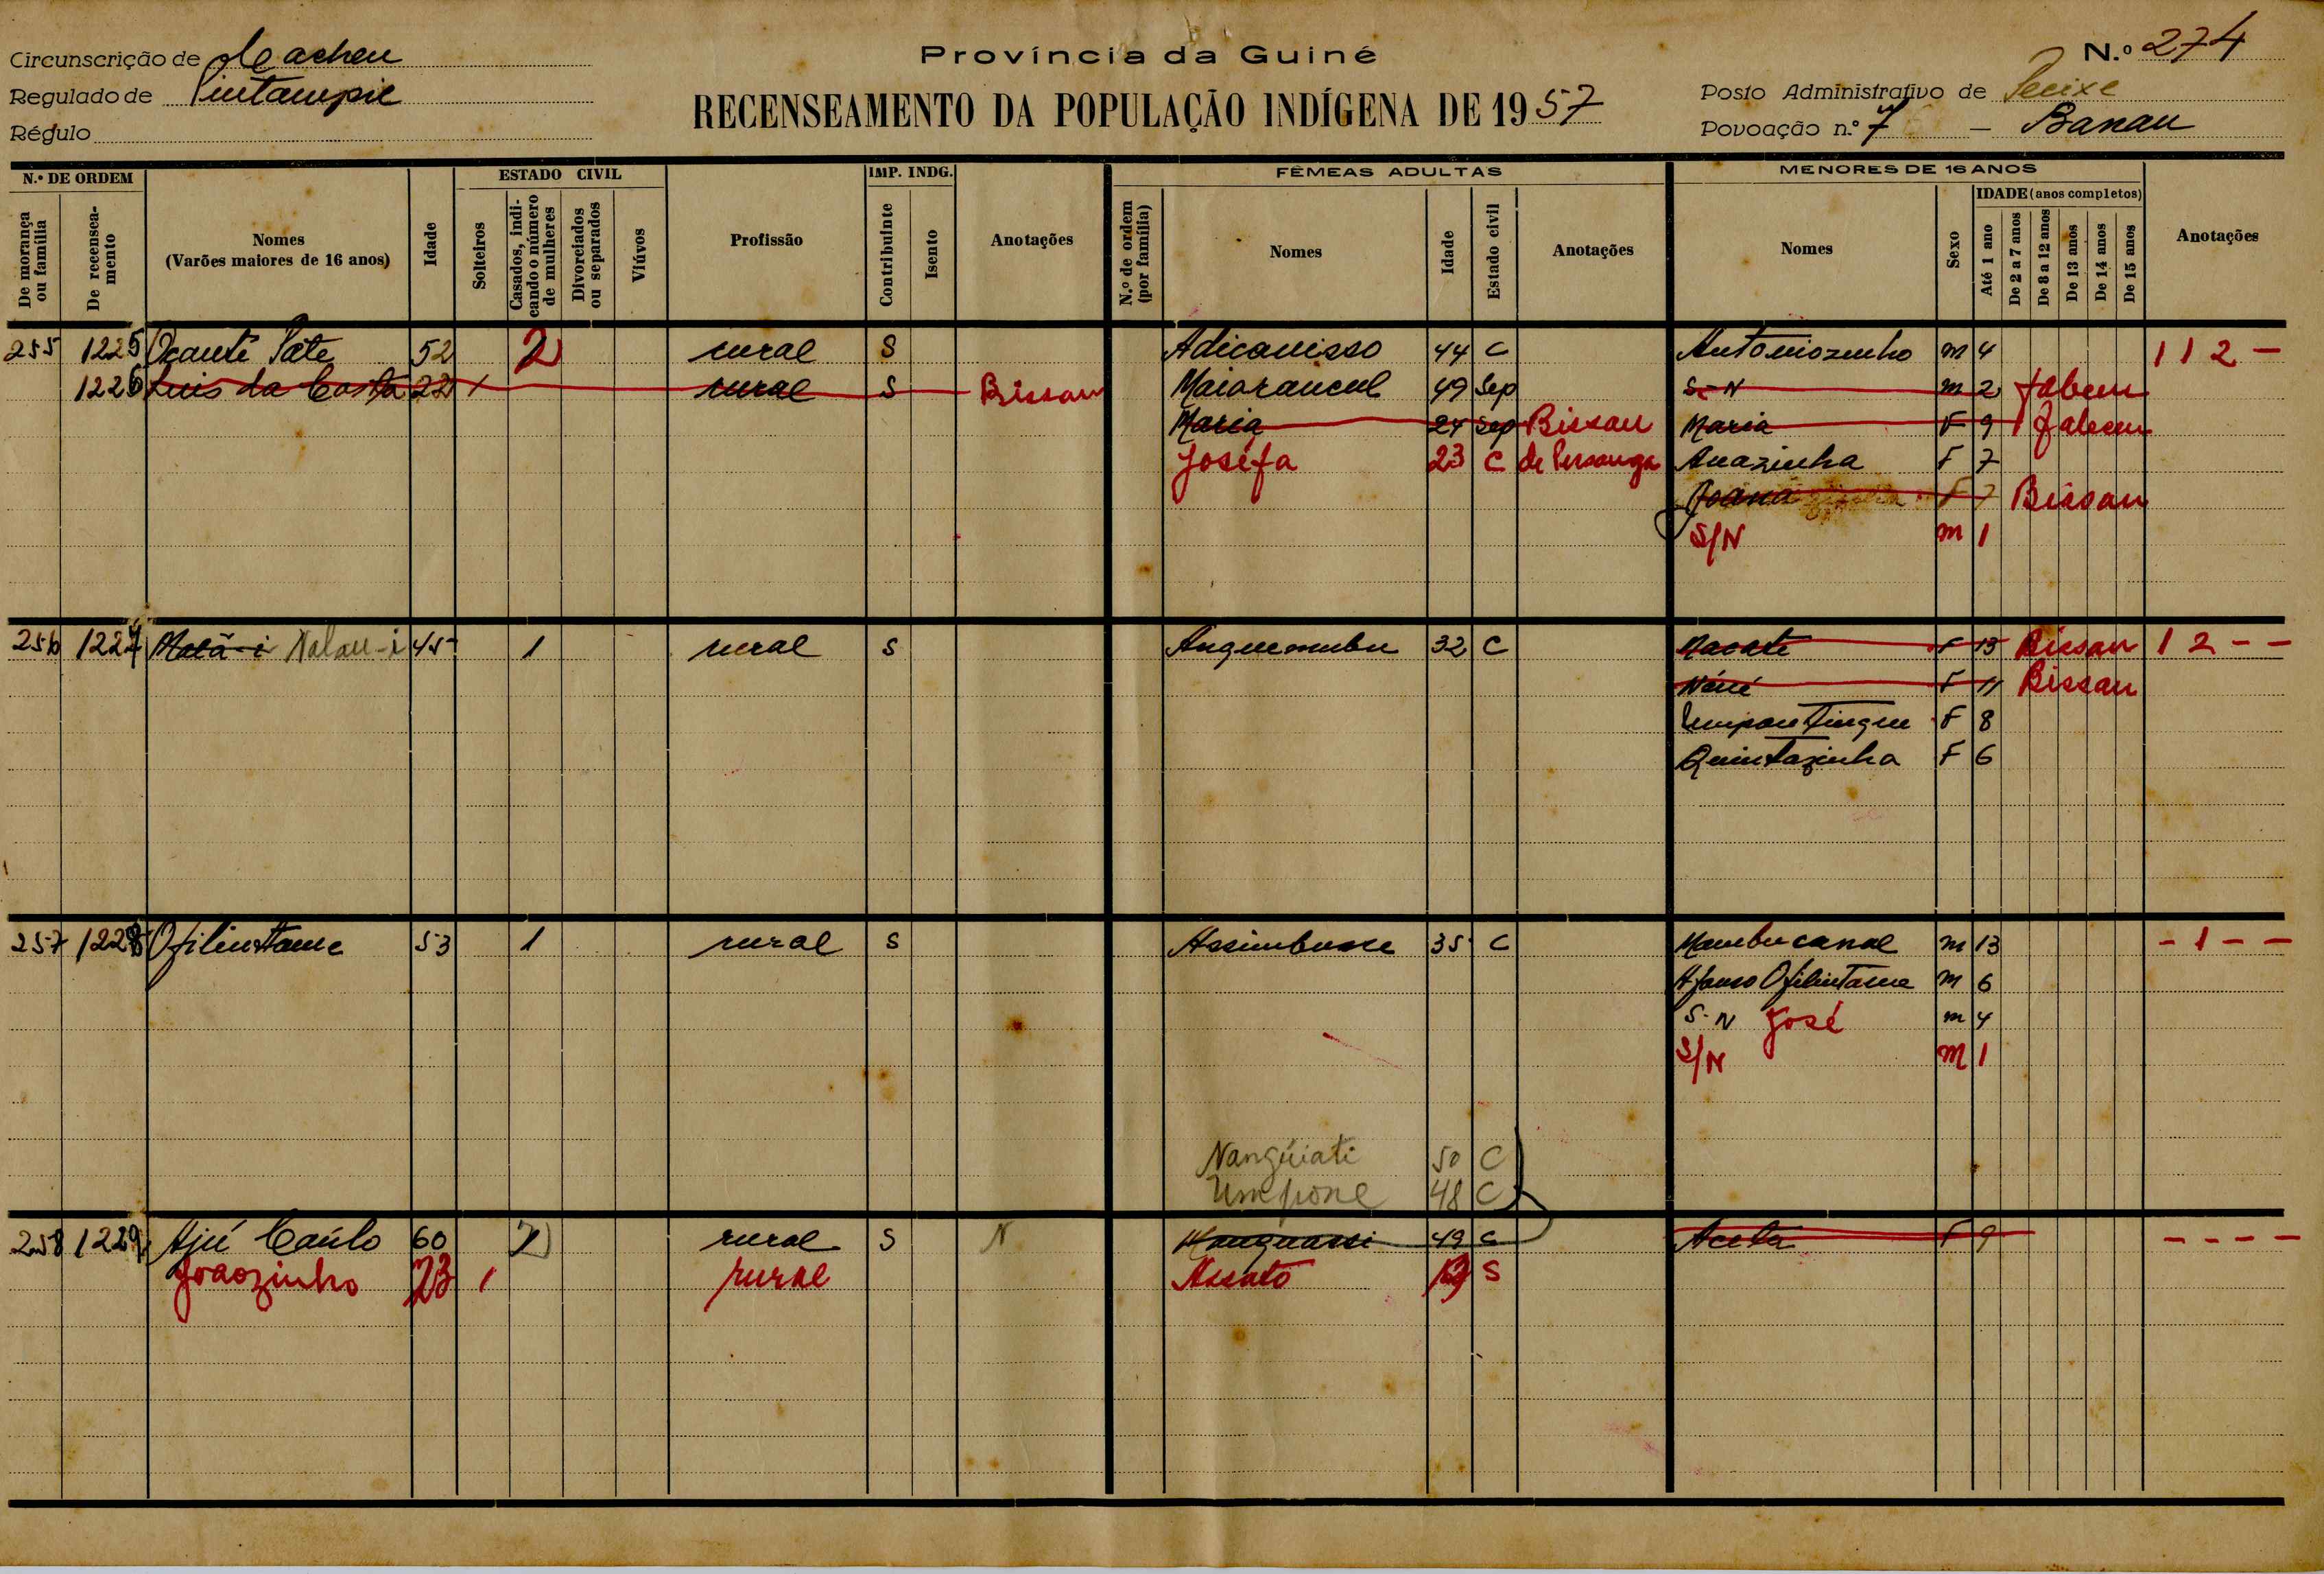 Circunscrição de Cacheu
Província da Guiné
N.º 274
Regulado de
RECENSEAMENTO DA POPULAÇÃO INDÍGENA DE 1957
Posto Administrativo de Pecixe
Régulo
Povoação n.º 7 - Banau
N.º DE ORDEM
ESTADO CIVIL
IMP. INDG.
FÊMEAS ADULTAS
MENORES DE 16 ANOS
De morança ou família
De recenseamento
Nomes
(Varões maiores de 16 anos)
Idade
Solteiros
Casados, indicando o número de mulheres
Divorciados ou separados
Viúvos
Profissão
Contribuinte
Isento
Anotações
N.º de ordem (por família)
Nomes
Idade
Estado civil
Anotações
Nomes
Sexo
IDADE (anos completos)
Até 1 ano
De 2 a 7 anos
De 8 a 12 anos
De 13 anos
De 14 anos
De 15 anos
Anotações
255 1225 Ocante Pate 52 2 rural S Adicanisso 44 C Antoniozinho m 4 1 1 2 -
1226 Luis da Costa 22 1 rural S Bissau Maiorancul 49 Sep S-N m 2
Maria 24 Sep Bissau Maria F 9
Joséfa 23 C de Anazinha F 7
Joana F 7 Bissau
S/N m 1
256 1227 Malã-i Nalau-i 45 1 rural S Anguemubu 32 C F 13 Bissau 1 2 - -
Néné F 11 Bissau
F 8
Quintazinha F 6
257 1228 Ofilintame 53 1 rural S Assimbusse 35 C Mambucanal m 13 - 1 - -
Afonso Ofilintame m 6
S-N José m 4
S/N m 1
Nangüiati 50 C
Umpone 48 C
258 1229 Ajú Caúlo 60 2 rural S N 49 C Aceta F 9 - - - -
Joaozinho 23 1 rural Assato S